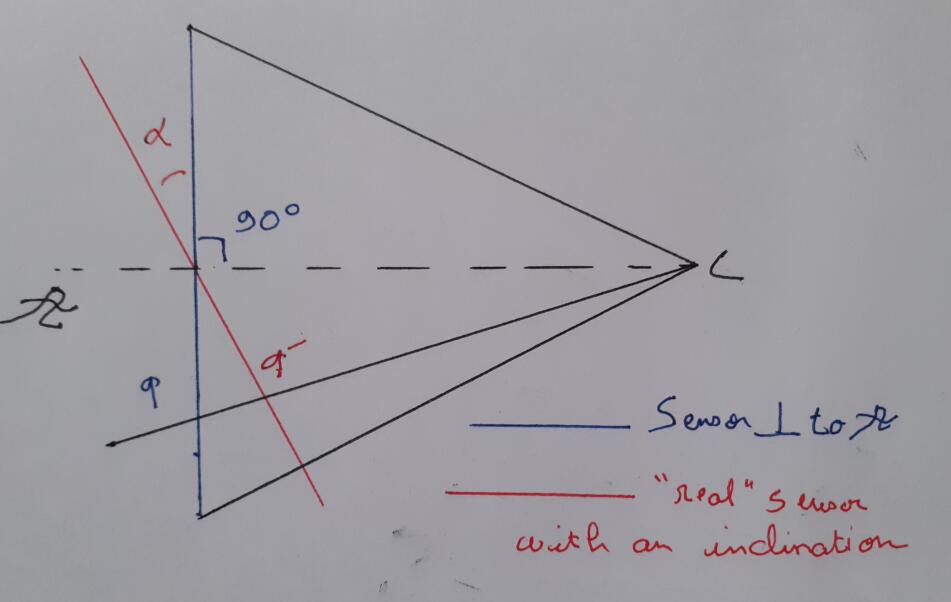 α
90°
C
π
q
q-
Sensor ⊥ to π
"real" sensor
with an inclination